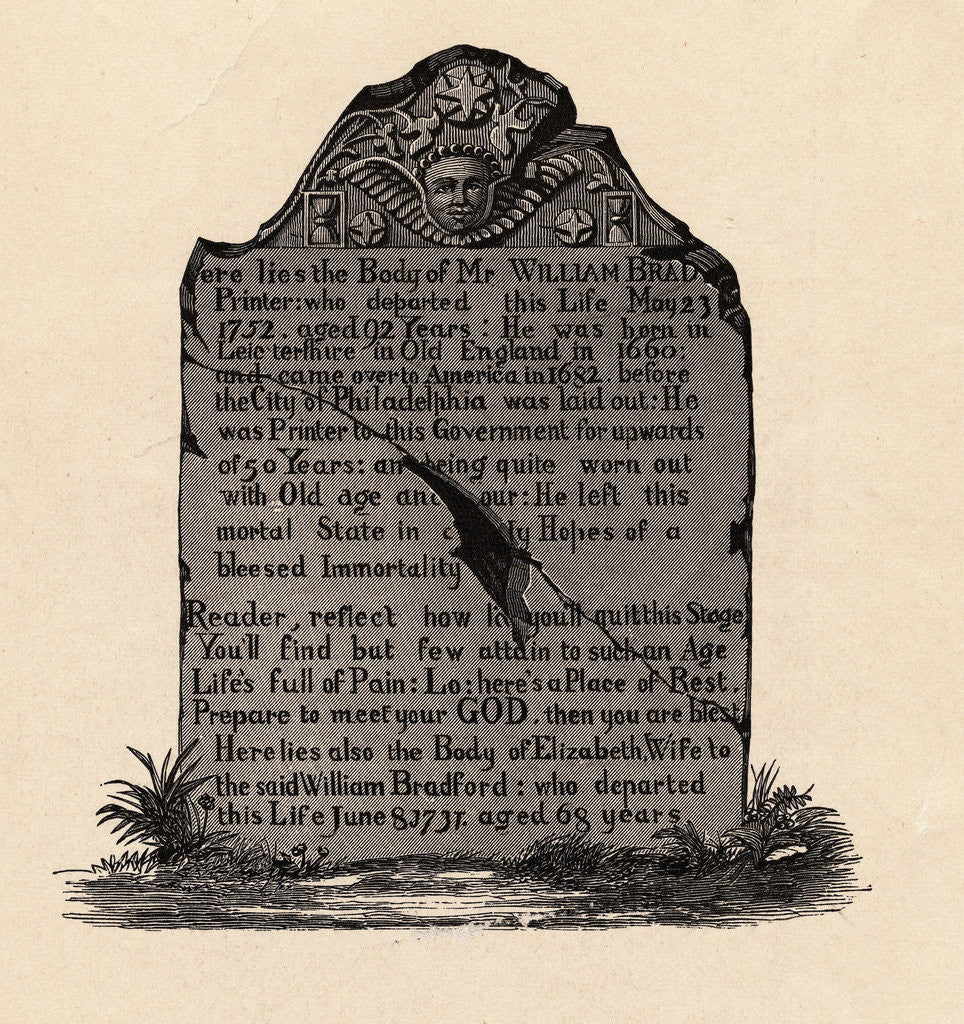 ere lies the Body of Mr. WILLIAM BRAD
Printer: who departed this Life May 23
1752. aged 92 Years: He was born in
Leicestershire in Old England in 1660:
and came over to America in 1682. before
the City of Philadelphia was laid out: He
was Printer to this Government for upwards
of 50 Years: an being quite worn out
with Old age and our: He left this
mortal State in ly Hopes of a
bleesed Immortality
Reader, reflect how you'll quit this Stage
You'll find but few attain to such an Age
Life's full of Pain: Lo: here's a Place of Rest.
Prepare to meet your GOD. then you are blest
Here lies also the Body of Elizabeth, Wife to
the said William Bradford: who departed
this Life June 8, 1731. aged 68 years.